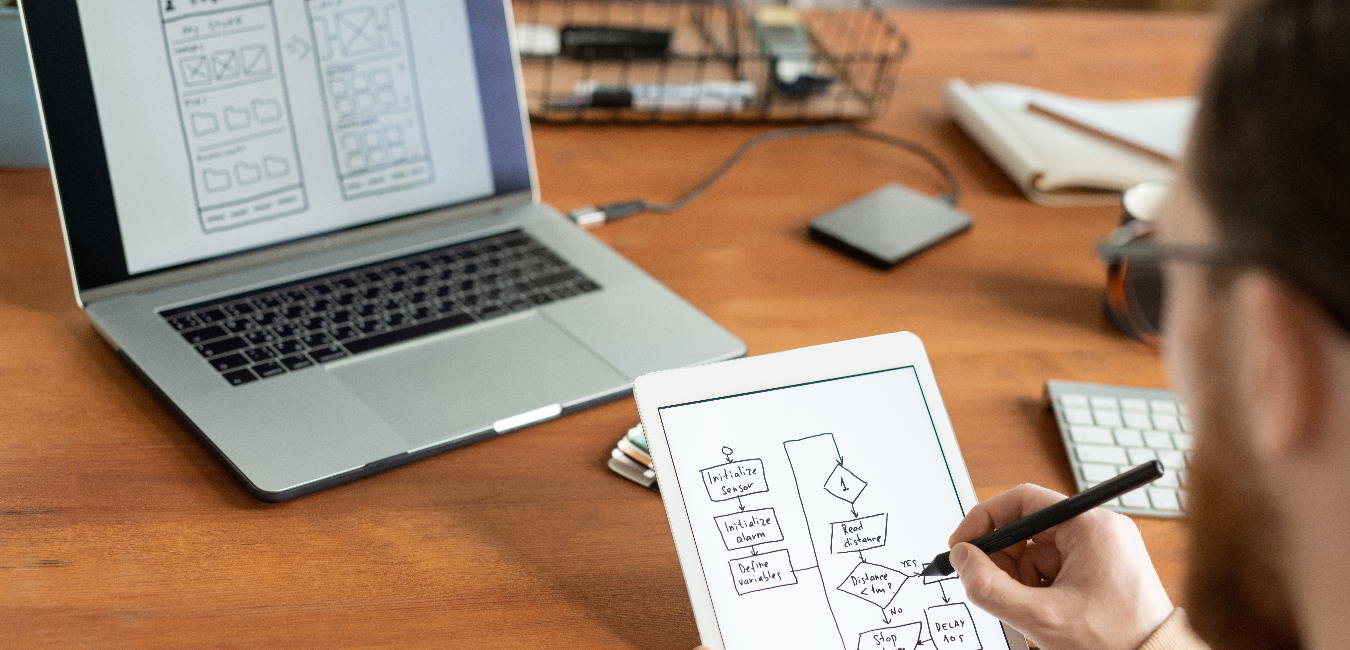 My stuff
Initialize
sensor
Initialize
alarm
Define
variables
1
Read
distance
Distance
<1m?
YES
NO
Stop
DELAY
10s